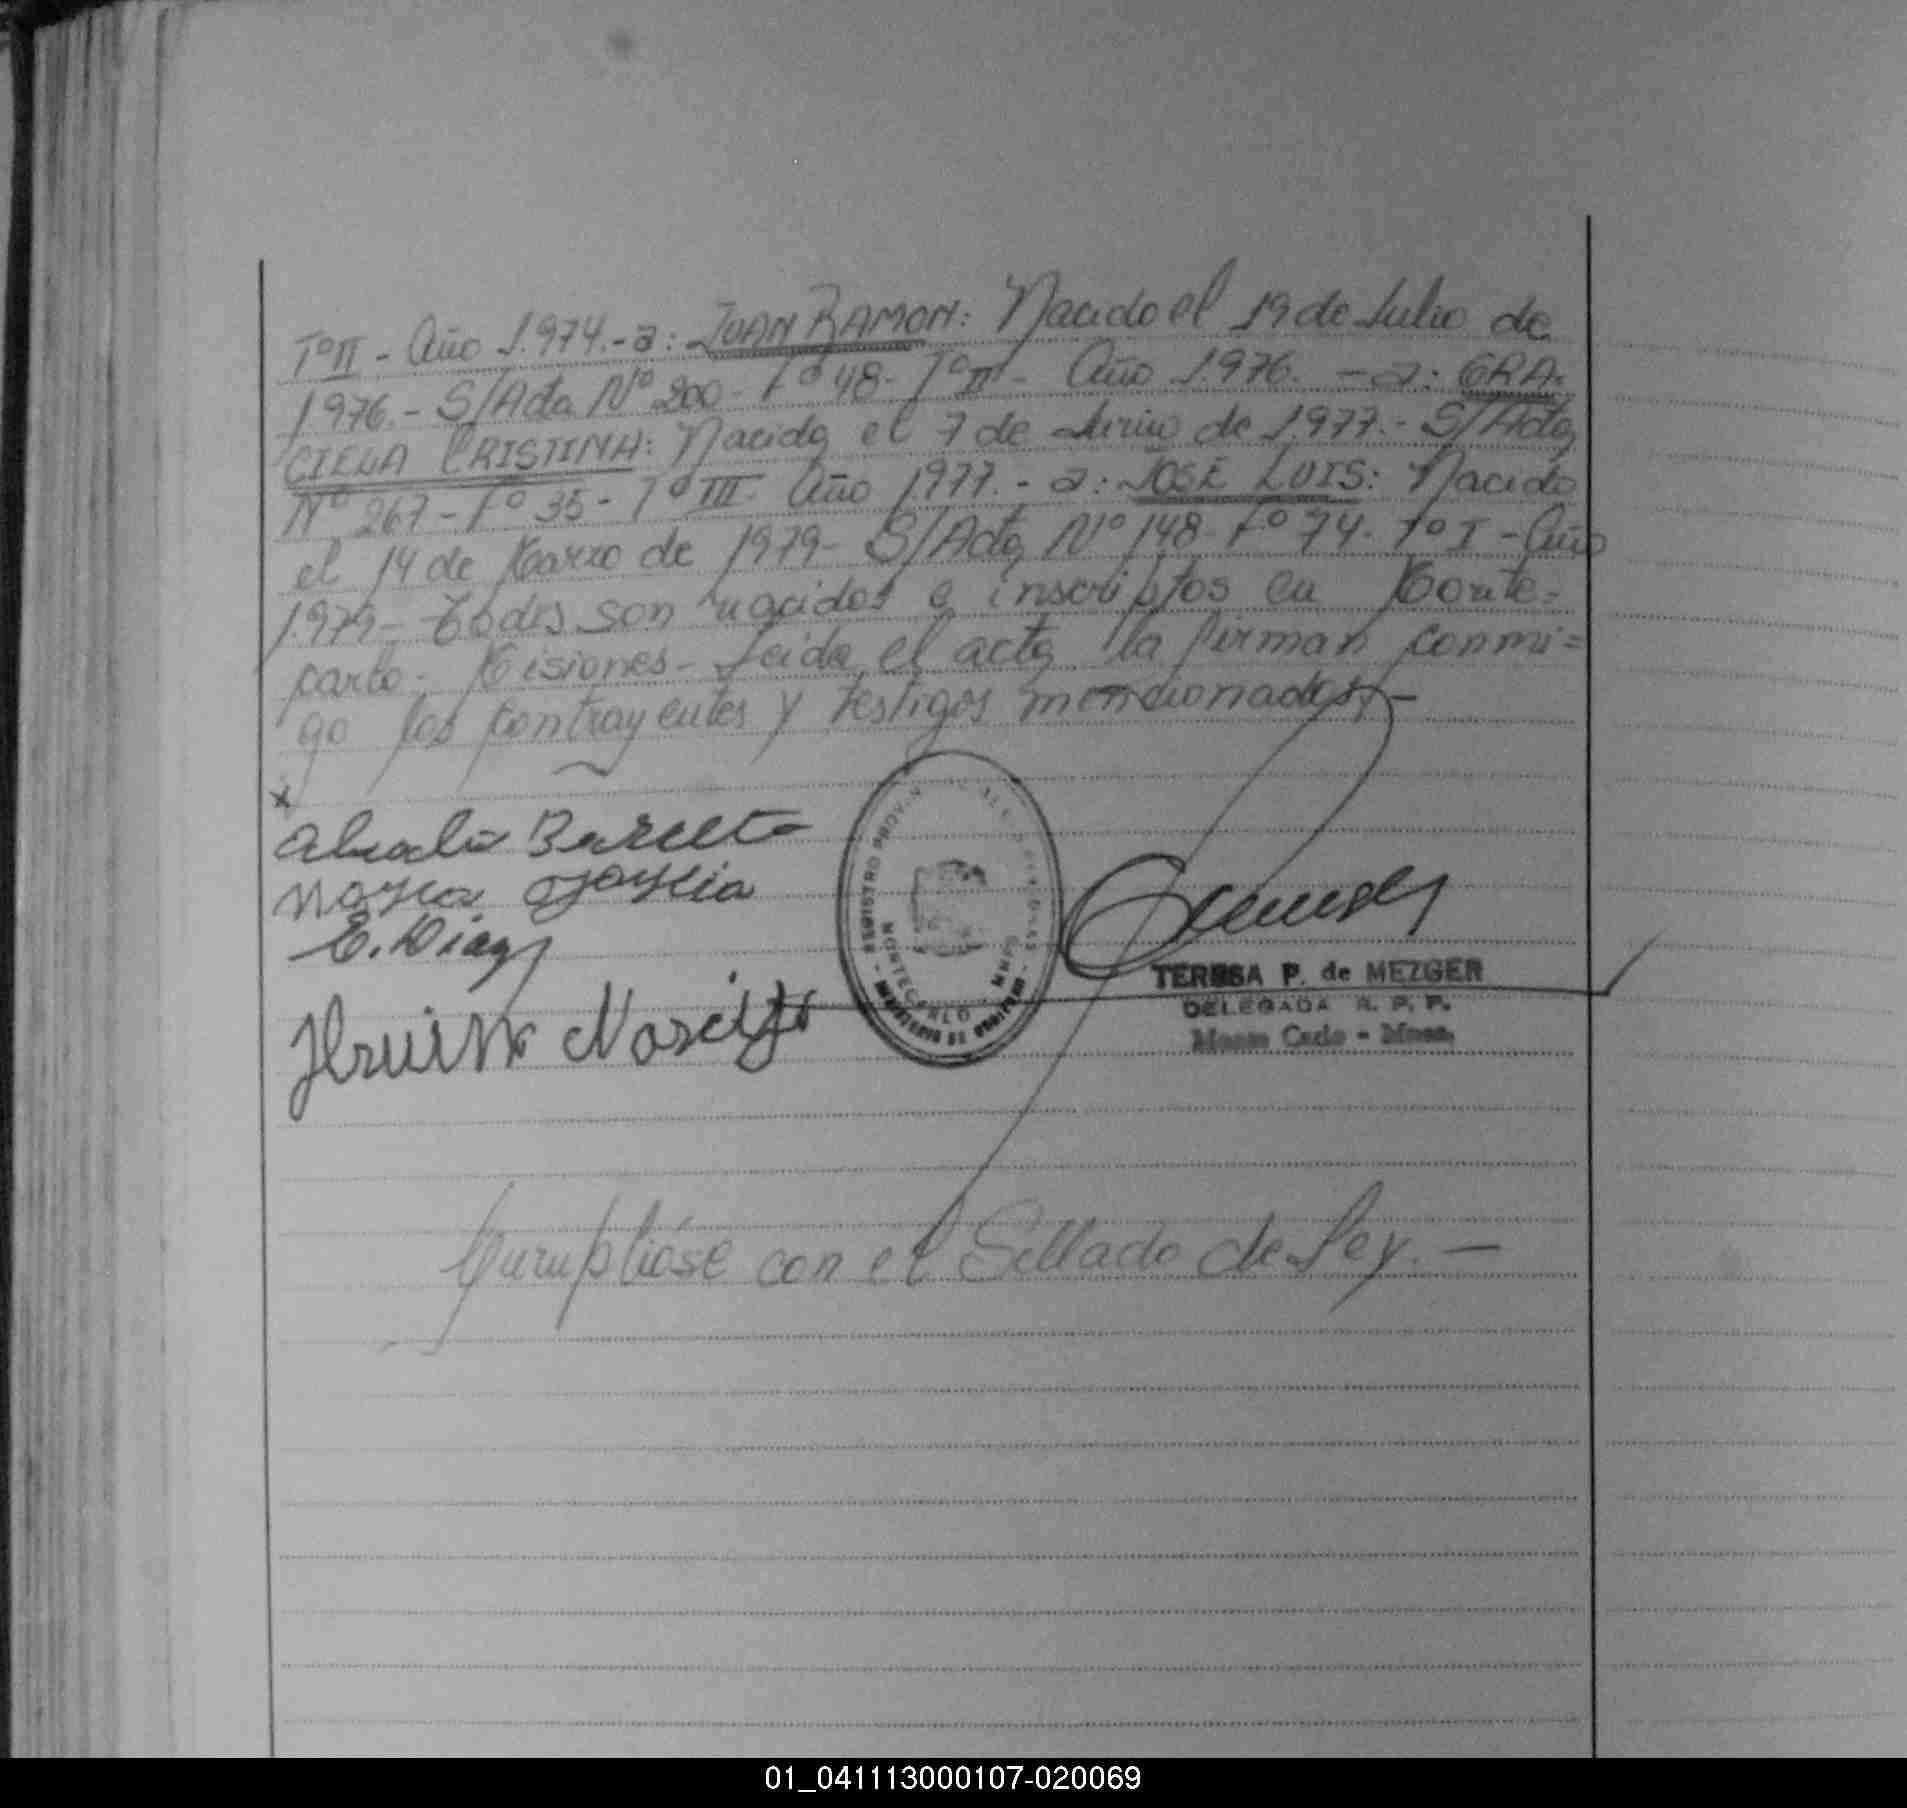 Tº II - Año 1.974.- a: JUAN RAMON: Nacido el 19 de Julio de
1976.- S/Acta Nº 200 - Fº 48 - Tº II - Año 1976. - a: GRA-
CIELA CRISTINA: Nacida el 7 de Junio de 1.977.- S/Acta
Nº 267 - Fº 35 - Tº III - Año 1977.- a: JOSÉ LUIS: Nacido
el 14 de Marzo de 1979 - S/Acta Nº 148 - Fº 74 - Tº I - Año
1.979 - Todos son nacidos e inscriptos en Monte=
carlo - Misiones - Leida el acta la firman conmi=
go los contrayentes y testigos mencionados. -
x
Barreto
E. Diaz
REGISTRO PROV.
MONTECARLO - MNES
TERESA P. de MEZGER
DELEGADA R. P. P.
Monte Carlo - Mnes.
Cumplióse con el Sellado de Ley. -
01_041113000107-020069